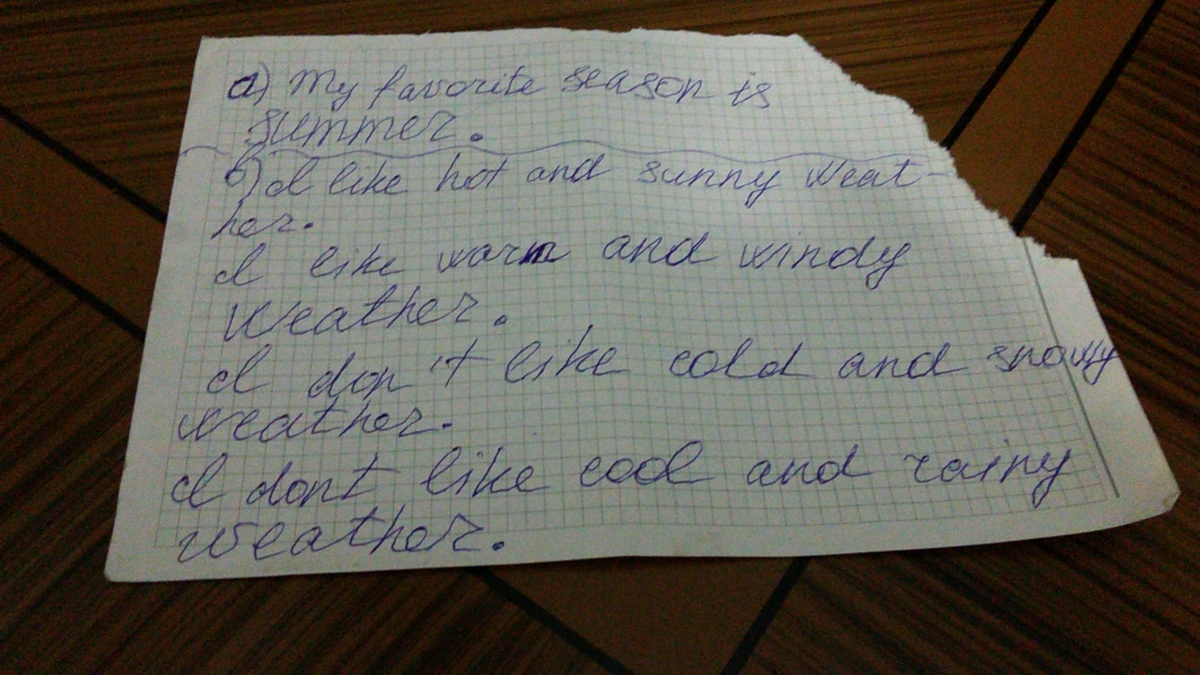 a) My favorite season is
summer.
b) I like hot and sunny weat-
her.
I like warm and windy
weather.
I don't like cold and snowy
weather.
I dont like cool and rainy
weather.